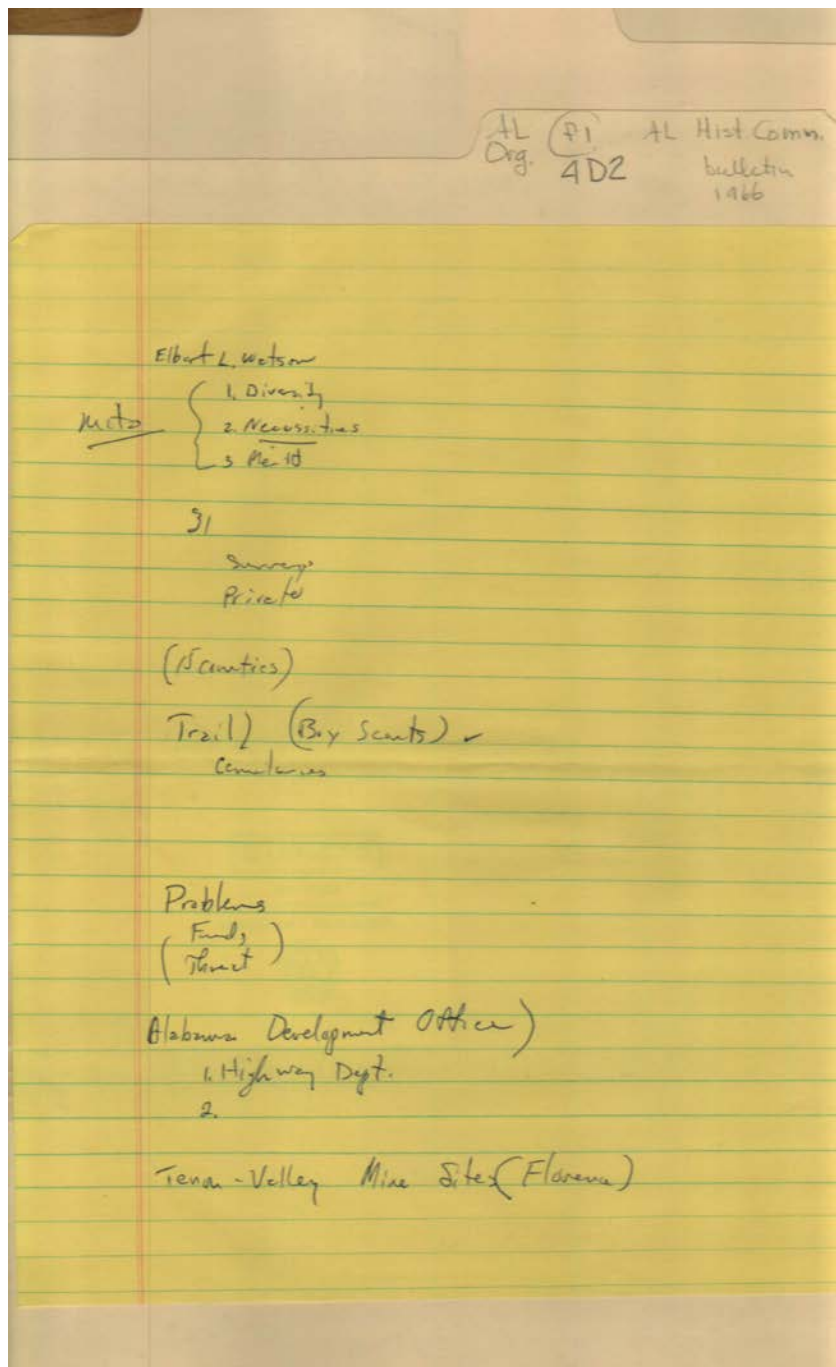 AL F1 AL Hist Comm.
Org. 4D2 bulletin
1966
Elbert L. Watson
1. Diversity
2. Necussities
3
31
Surveys
Private
(15 counties)
Trail) (Boy Scouts)
Problems
( Funds )
Threat
Alabama Development Office)
1. Highway Dept.
2.
Tenn-Valley Mine Sites (Florence)